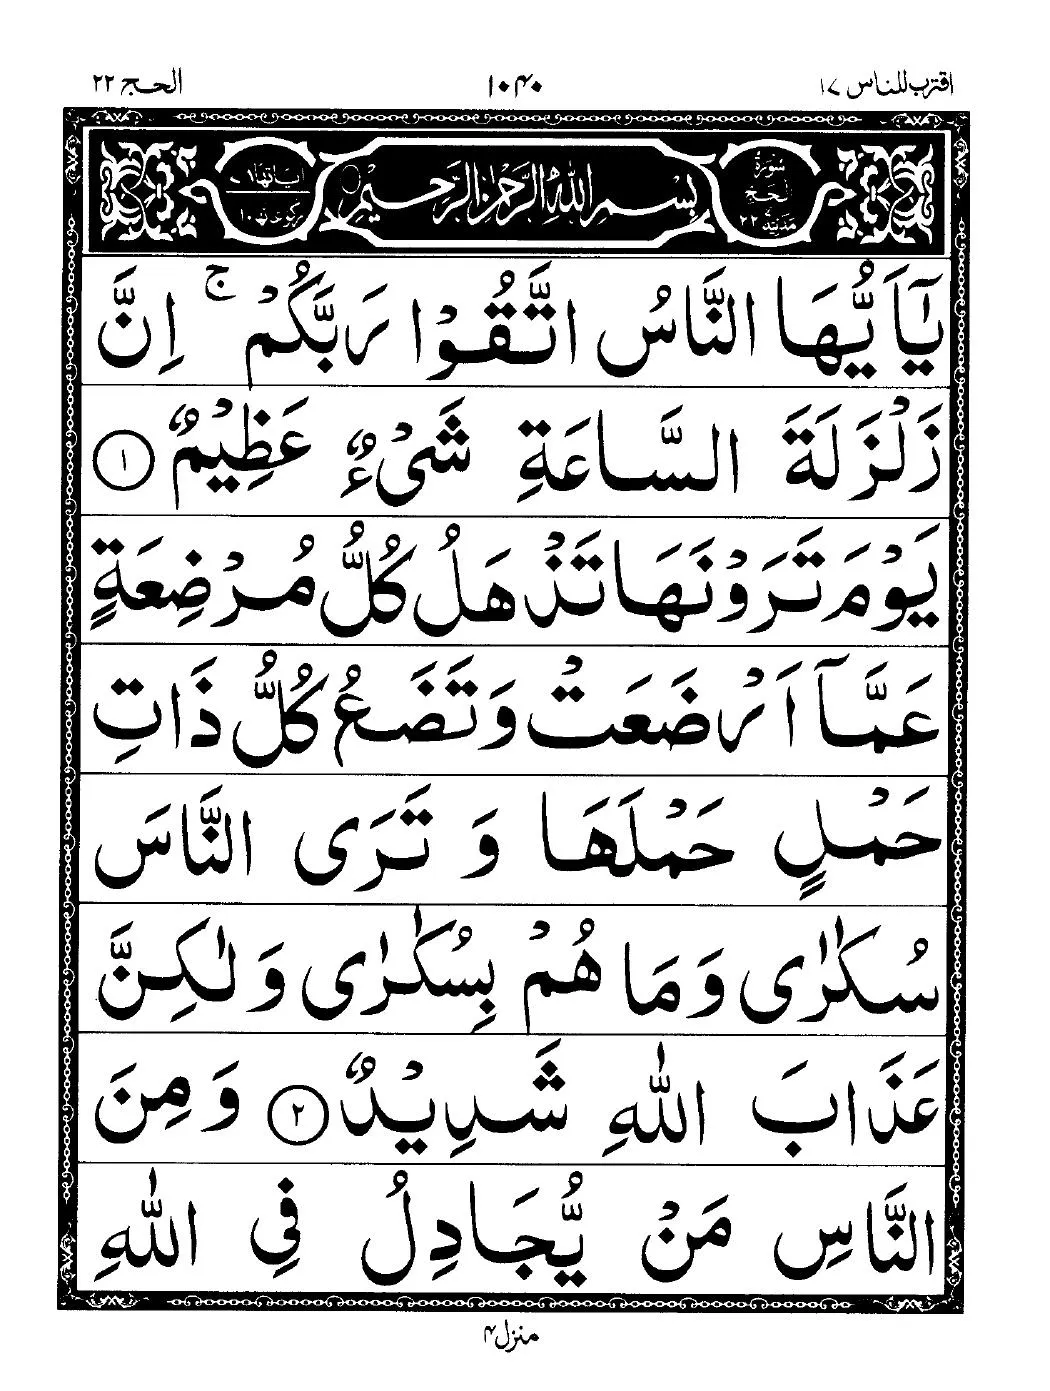 اقترب للناس ١٧
١٠٤٠
الحج ٢٢
سورة الحج مدنية ٢٢
بسم الله الرحمن الرحيم
يٰٓاَيُّهَا النَّاسُ اتَّقُوْا رَبَّكُمْ ۚ اِنَّ
زَلْزَلَةَ السَّاعَةِ شَىْءٌ عَظِيْمٌ ١
يَوْمَ تَرَوْنَهَا تَذْهَلُ كُلُّ مُرْضِعَةٍ
عَمَّآ اَرْضَعَتْ وَتَضَعُ كُلُّ ذَاتِ
حَمْلٍ حَمْلَهَا وَ تَرَى النَّاسَ
سُكٰرٰى وَمَا هُمْ بِسُكٰرٰى وَلٰكِنَّ
عَذَابَ اللّٰهِ شَدِيْدٌ ٢ وَمِنَ
النَّاسِ مَنْ يُّجَادِلُ فِى اللّٰهِ
منزل ۴